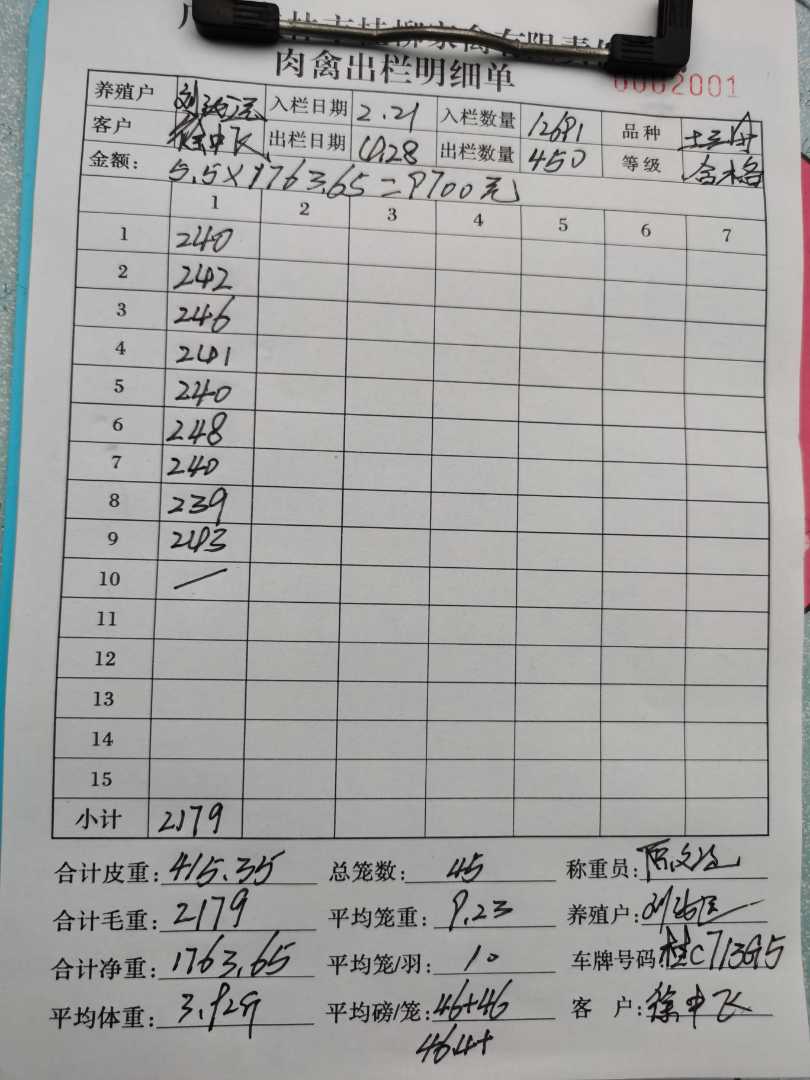 桂柳家禽有限责任
肉禽出栏明细单
0002001
养殖户 入栏日期 2.21 入栏数量 12681 品种
客户 徐中飞 出栏日期 出栏数量 450 等级 合格
金额: 5.5×1763.65=9700元
1 2 3 4 5 6 7
1 240
2 242
3 246
4 241
5 240
6 248
7 240
8 239
9 243
10 —
11
12
13
14
15
小计 2179
合计皮重: 415.35 总笼数: 45 称重员:
合计毛重: 2179 平均笼重: 9.23 养殖户:
合计净重: 1763.65 平均笼/羽: 10 车牌号码: 桂C713G5
平均体重: 3.92 平均磅/笼: 46+46 客 户: 徐中飞
46.4+